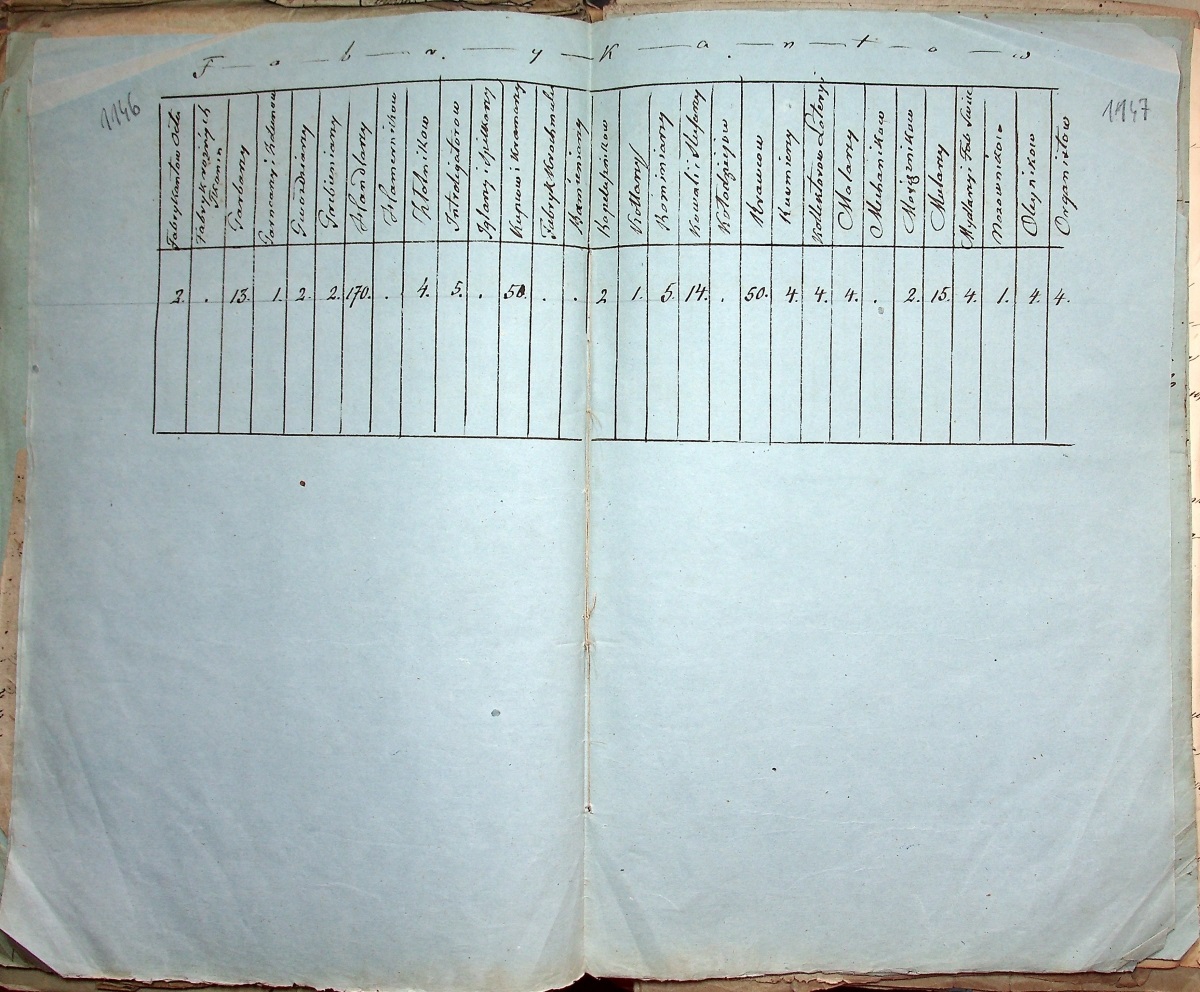 F a b r y k a n t ó w
1146
1147
Fabrykantów Octu
Fabryk różnych
Tkanin
Farbiarzy
Garncarzy i Zdunów
Gwoździarzy
Grzebieniarzy
Handlarzy
Hamerników
Kotlarzy
Introligatorów
Iglarzy i Szpilkarzy
Kupców i Kramarzy
Fabryk Krochmalu
Kapeluszników
Kominiarzy
Kowali i Ślosarzy
Kołodziejów
Krawców
Kuśnierzy
Kollektorów Loteryi
Malarzy
Mechaników
Mosiężników
Mularzy
Mydlarzy i Fab. Świec
Olejników
Organistów
2. . 13. 1. 2. 2. 170. . 4. 5. . 50. . . 2 1. 5. 14. . 50. 4. 4. 4. . 2. 15. 4. 1. 4. 4.